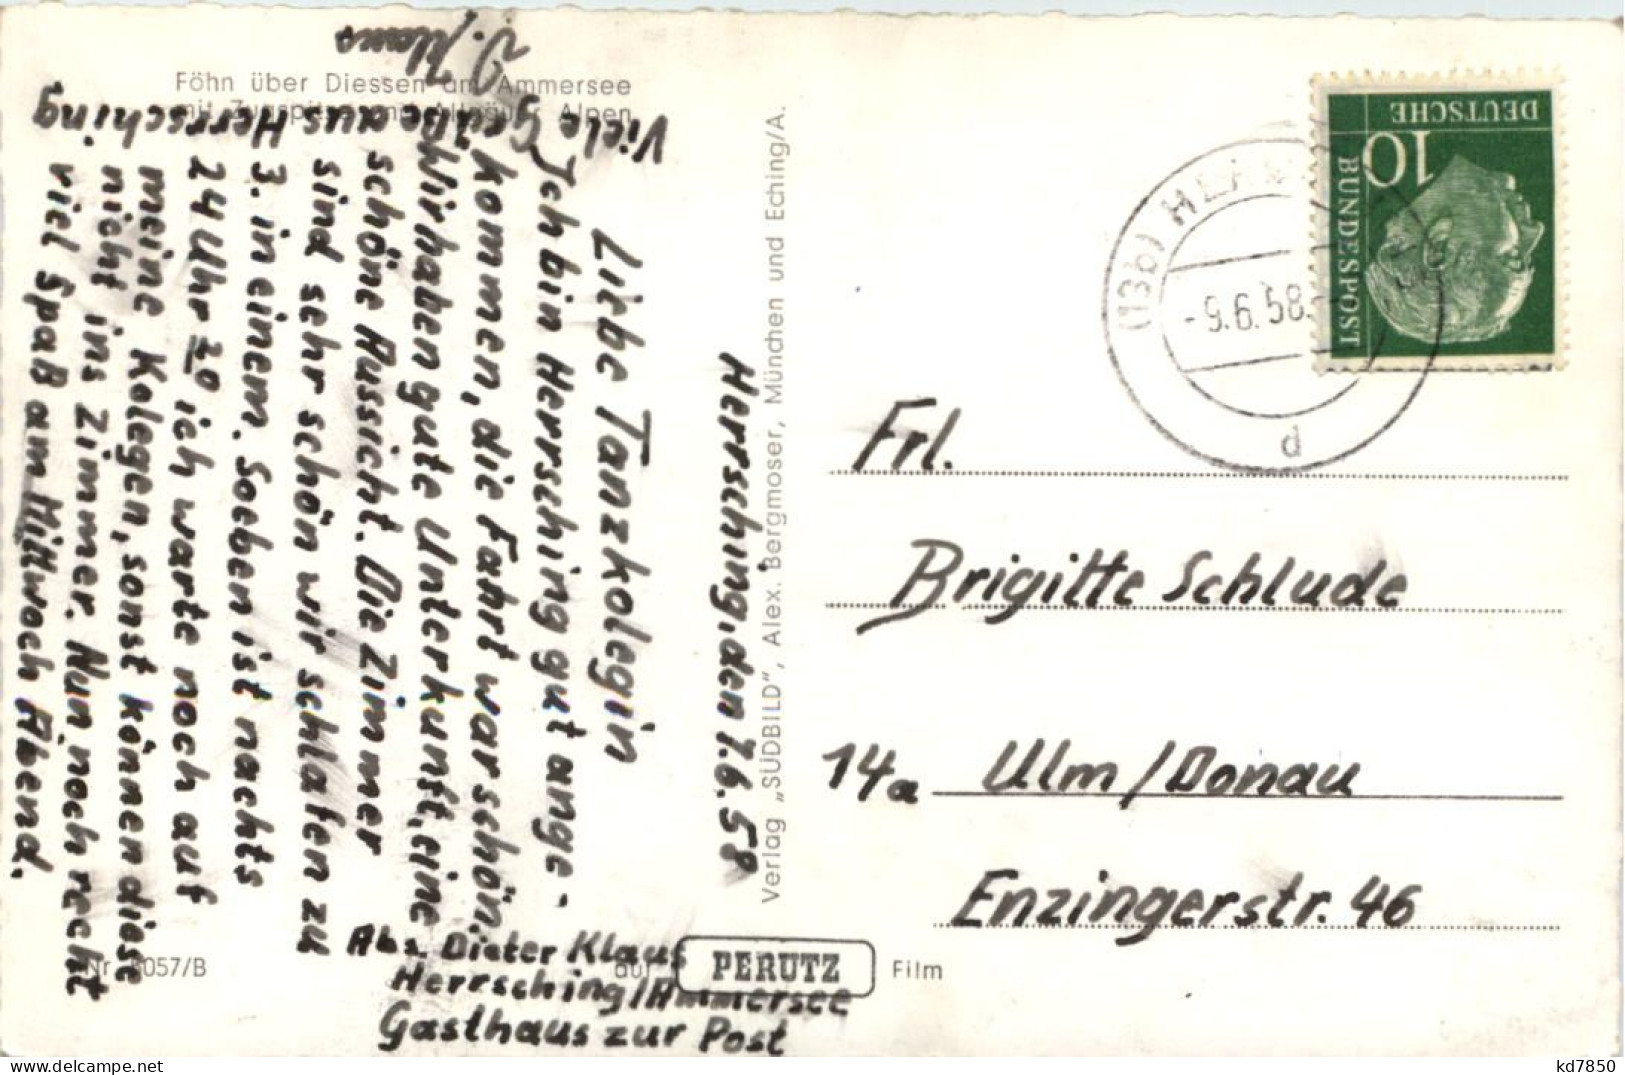 Föhn über Diessen am Ammersee
mit Zugspitze und Allgäuer Alpen
Herrsching, den 7.6.58
Liebe Tanzkolegin
Ich bin Herrsching gut ange-
kommen, die Fahrt war schön.
Wir haben gute Unterkunft, eine
schöne Aussicht. Die Zimmer
sind sehr schön wir schlafen zu
3. in einem. Soeben ist nachts
24 Uhr 20 ich warte noch auf
meine Kolegen, sonst können diese
nicht ins Zimmer. Nun noch recht
viel Spaß am Mittwoch Abend.
Viele Grüße aus Herrsching
D. Klaus
Abs. Dieter Klaus
Herrsching/Ammersee
Gasthaus zur Post
Verlag „SÜDBILD", Alex. Bergmoser, München und Eching/A.
Nr. 8057/B
auf PERUTZ Film
DEUTSCHE
BUNDESPOST
10
(13b) HERR
-9.6.58
d
Frl.
Brigitte Schlude
14a Ulm/Donau
Enzingerstr. 46
kd7850